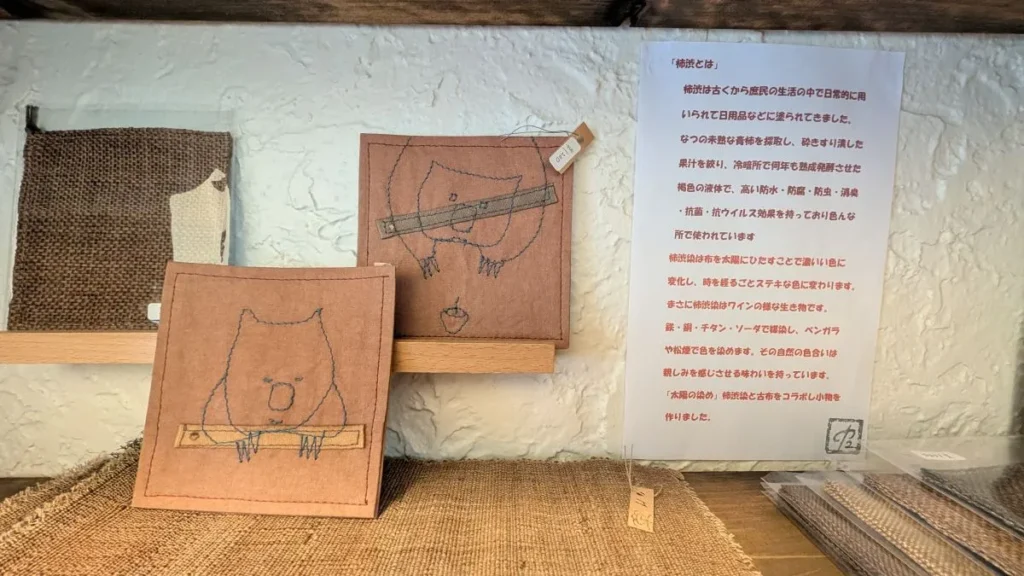 「柿渋とは」
柿渋は古くから庶民の生活の中で日常的に用
いられて日用品などに塗られてきました。
なつの未熟な青柿を採取し、砕きすり潰した
果汁を絞り、冷暗所で何年も熟成発酵させた
褐色の液体で、高い防水・防腐・防虫・消臭
・抗菌・抗ウイルス効果を持っており色んな
所で使われています
柿渋染は布を太陽にひたすことで濃いい色に
変化し、時を経るごとステキな色に変わります。
まさに柿渋染はワインの様な生き物です。
鉄・銅・チタン・ソーダで媒染し、ベンガラ
や松煙で色を染めます。その自然の色合いは
親しみを感じさせる味わいを持っています。
「太陽の染め」柿渋染と古布をコラボし小物を
作りました。